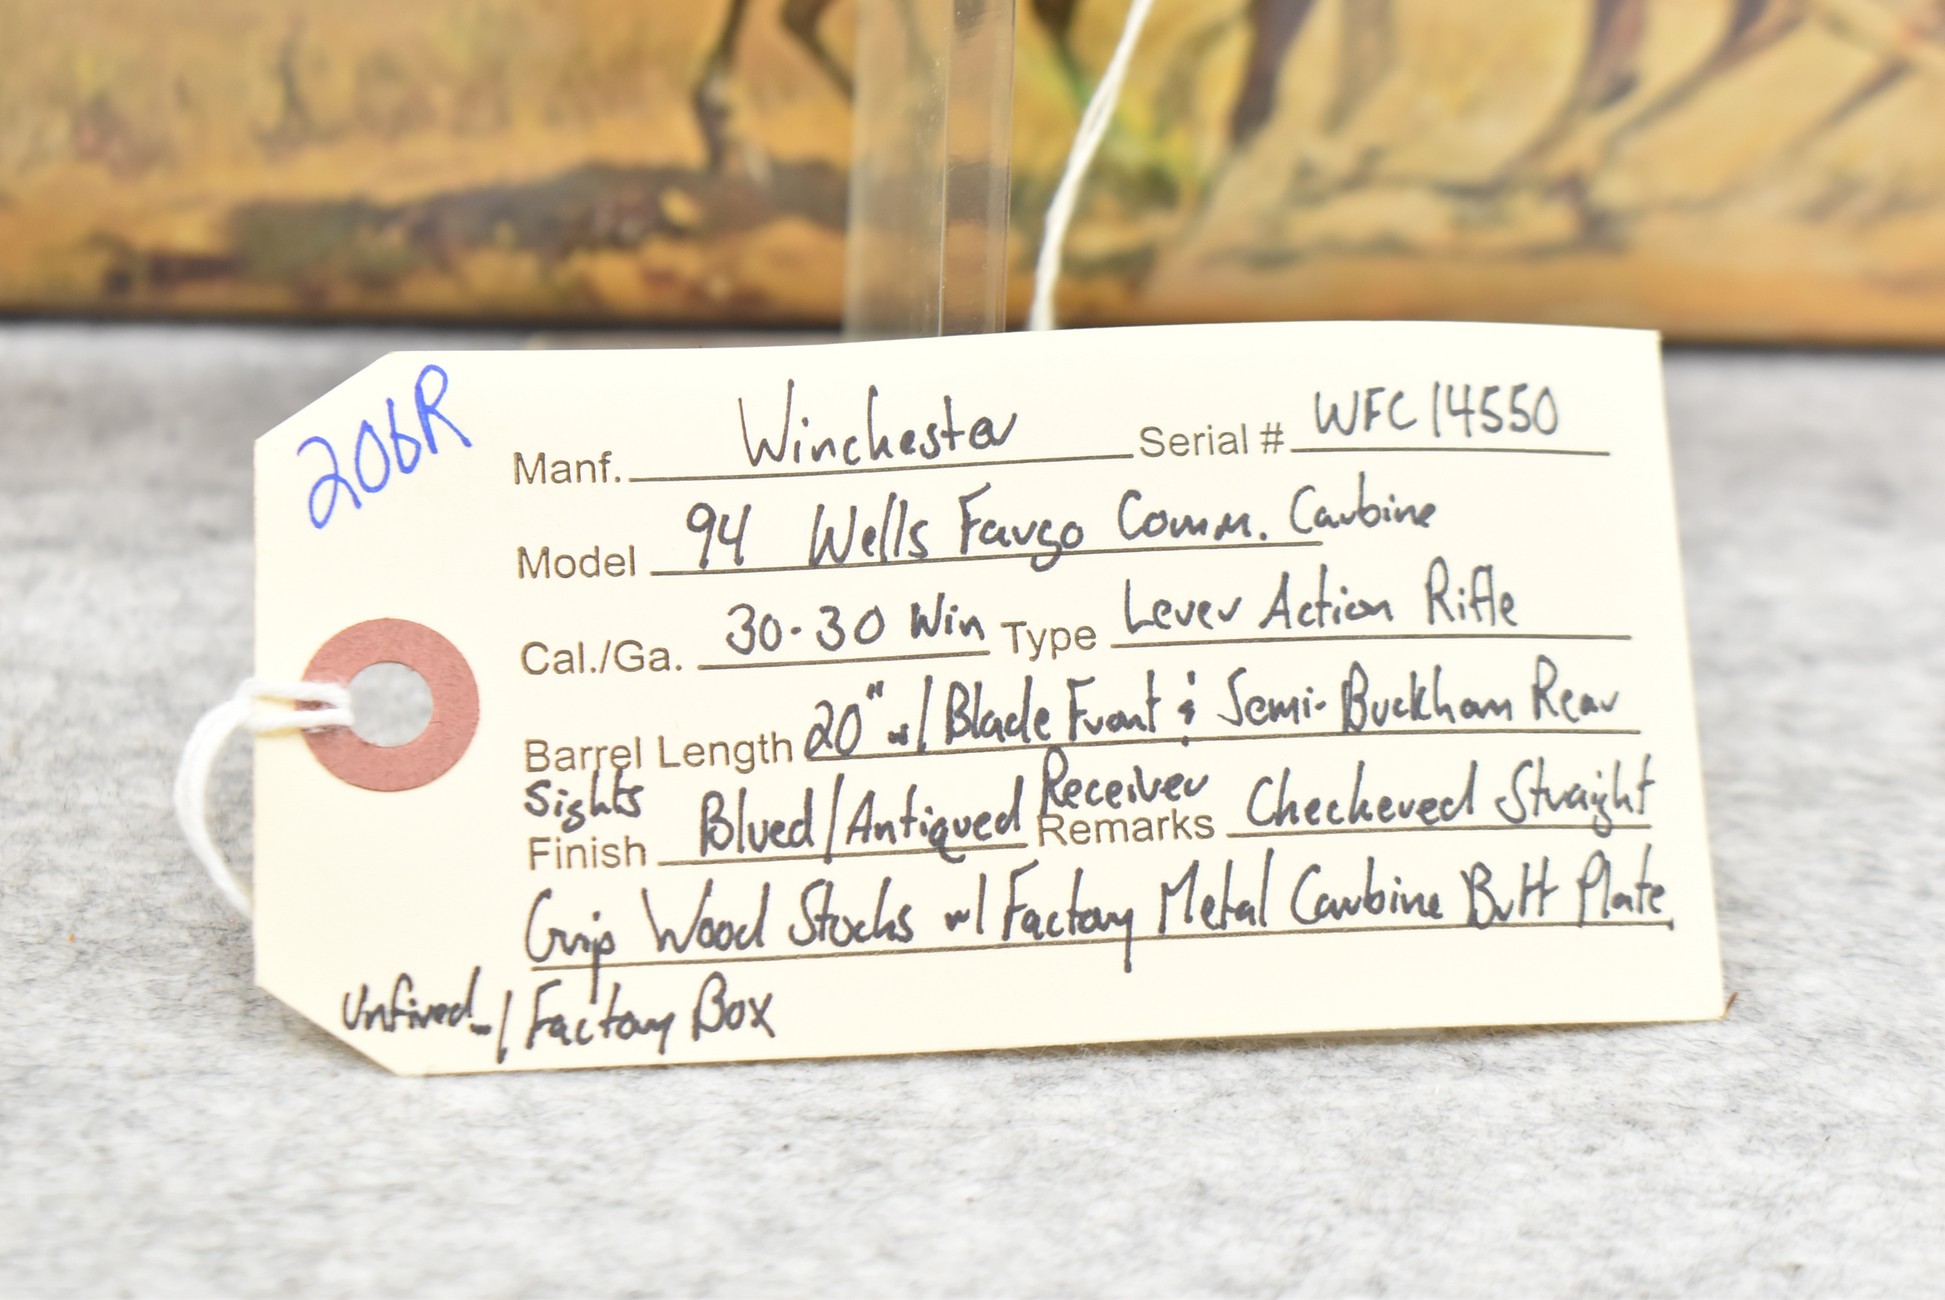 206R
Manf. Winchester Serial # WFC 14550
Model 94 Wells Fargo Comm. Carbine
Cal./Ga. 30-30 Win Type Lever Action Rifle
Barrel Length 20" w/ Blade Front & Semi-Buckham Rear
Sights
Finish Blued/Antiqued Receiver Remarks Checkered Straight
Grip Wood Stocks w/ Factory Metal Carbine Butt Plate
Unfired w/ Factory Box